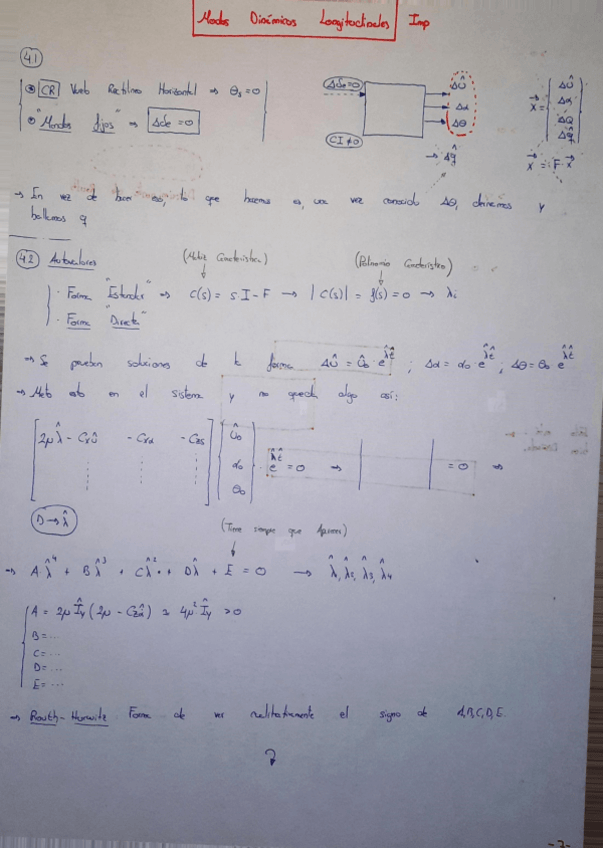 Modos Dinámicos Longitudinales Imp
4.1
CR Vuelo Rectilíneo Horizontal ⇒ θs = 0
"Mandos fijos" ⇒ Δδe = 0
Δδe = 0
CI ≠ 0
Δû
Δα
Δθ
→ Δq̂
x⃗ = | Δû Δα ΔΘ Δq̂ |
ẋ = F · x⃗
→ En vez de hacer eso, lo que hacemos es, una vez conocido Δθ, derivamos y
hallamos q
4.2 Autovalores
(Matriz Característica)
(Polinomio Característico)
· Forma "Estándar" ⇒ C(s) = s·I - F → |C(s)| = f(s) = 0 → λi
· Forma "Directa"
→ Se prueban soluciones de la forma Δû = û₀ · e^λ̂t̂ ; Δα = α₀ · e^λ̂t̂ ; Δθ = θ₀ e^λ̂t̂
→ Meto esto en el sistema y nos queda algo así:
[2μλ̂ - Cxû - Cxα - Czs] [û₀ α₀ θ₀] · e^λ̂t̂ = 0 ⇒ | | = 0 ⇒
D → λ̂
(Tiene siempre que Aparecer)
→ A λ̂⁴ + B λ̂³ + C λ̂² + D λ̂ + E = 0 → λ̂₁, λ̂₂, λ̂₃, λ̂₄
A = 2μ Îy (2μ - Czα̂) ≃ 4μ² Îy > 0
B = ...
C = ...
D = ...
E = ...
→ Routh-Hurwitz Forma de ver cualitativamente el signo de A, B, C, D, E.
-2-